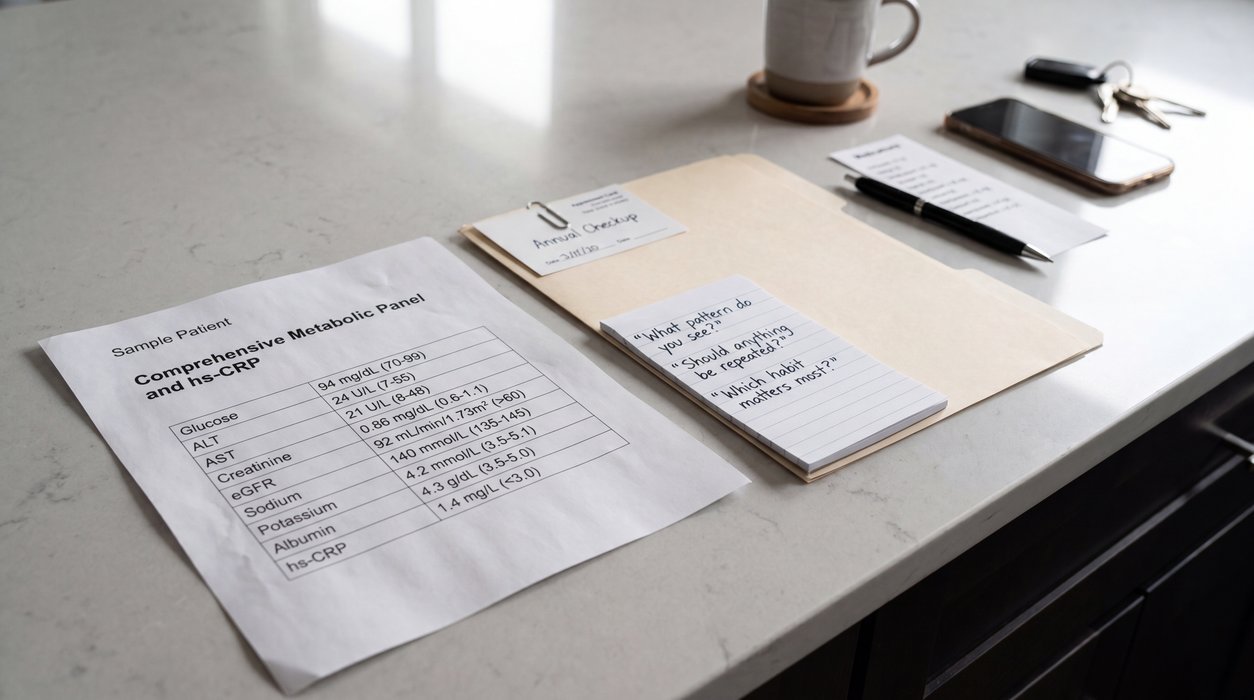 Sample Patient
Comprehensive Metabolic Panel
and hs-CRP
Glucose 94 mg/dL (70-99)
ALT 24 U/L (7-55)
AST 21 U/L (8-48)
Creatinine 0.86 mg/dL (0.6-1.1)
eGFR 92 mL/min/1.73m² (>60)
Sodium 140 mmol/L (135-145)
Potassium 4.2 mmol/L (3.5-5.1)
Albumin 4.3 g/dL (3.5-5.0)
hs-CRP 1.4 mg/L (<3.0)
Appointment Card
Annual Checkup
Date
Date
"What pattern do
you see?"
"Should anything
be repeated?"
"Which habit
matters most?"